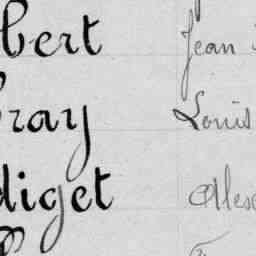 bert Jean
ray Louis
diget Alex